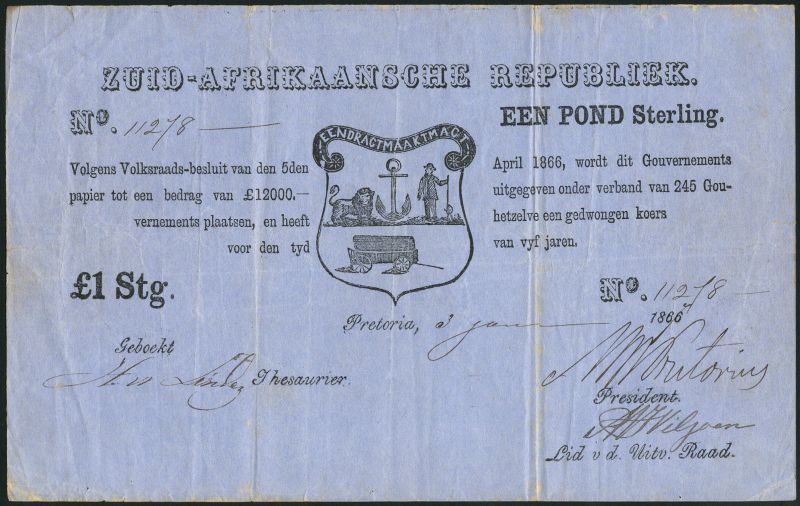 ZUID-AFRIKAANSCHE REPUBLIEK.
No. 11278
EEN POND Sterling.
EENDRAGTMAAKTMAGT
Volgens Volksraads-besluit van den 5den April 1866, wordt dit Gouvernements
papier tot een bedrag van £12000.— uitgegeven onder verband van 245 Gou-
vernements plaatsen, en heeft hetzelve een gedwongen koers
voor den tyd van vyf jaren.
£1 Stg.
No. 11278
Pretoria, 3 1866
Geboekt
Thesaurier.
MW Pretorius
President.
Viljoen
Lid v d. Uitv. Raad.